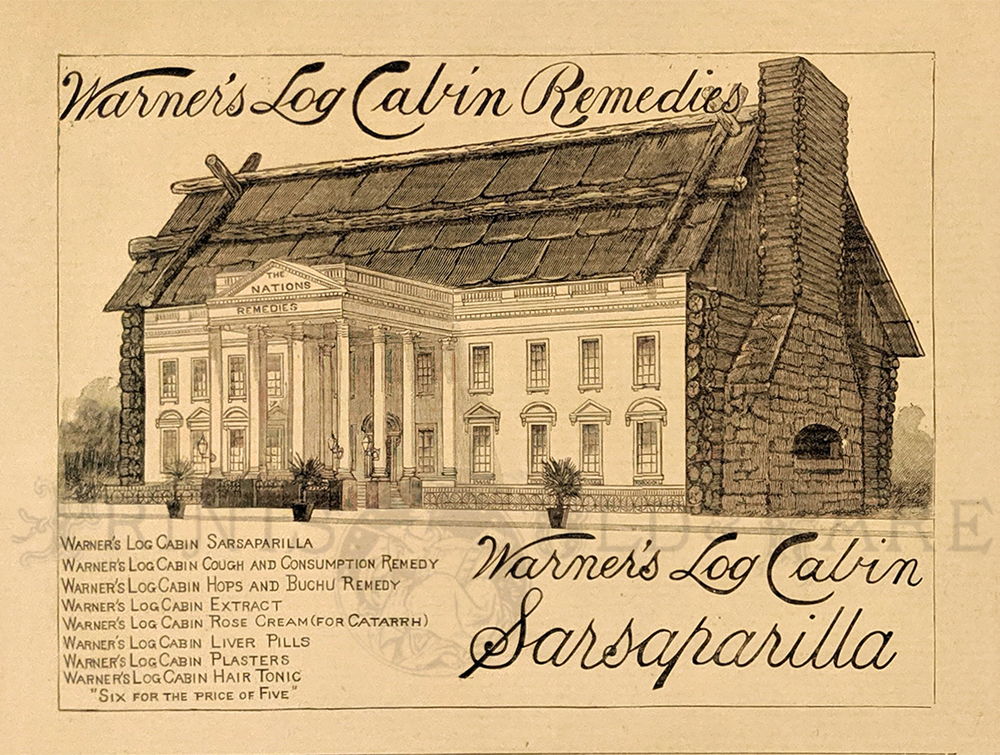 Warner's Log Cabin Remedies
THE
NATIONS
REMEDIES
WARNER'S LOG CABIN SARSAPARILLA
WARNER'S LOG CABIN COUGH AND CONSUMPTION REMEDY
WARNER'S LOG CABIN HOPS AND BUCHU REMEDY
WARNER'S LOG CABIN EXTRACT
WARNER'S LOG CABIN ROSE CREAM (FOR CATARRH)
WARNER'S LOG CABIN LIVER PILLS
WARNER'S LOG CABIN PLASTERS
WARNER'S LOG CABIN HAIR TONIC
"SIX FOR THE PRICE OF FIVE"
Warner's Log Cabin
Sarsaparilla
PRINTS OLD & RARE